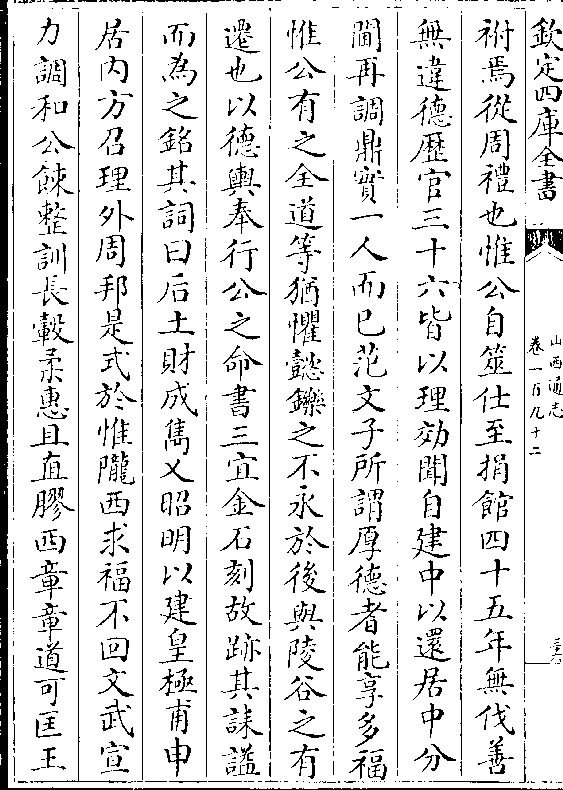 欽定四庫全書
山西通志
卷一百九十二
祔焉從周禮也惟公自筮仕至捐館四十五年無伐善
無違德歴官三十六皆以理効聞自建中以還居中分
閫再調鼎實一人而已范文子所謂厚德者能享多福
惟公有之全道等猶懼懿鑠之不永於後與陵谷之有
遷也以德輿奉行公之命書三宜金石刻故跡其誄謚
而為之銘其詞曰后土財成雋乂昭明以建皇極甫申
居内方召理外周邦是式於惟隴西求福不回文武宣
力調和公餗整訓長轂柔惠且直膠西章章道可匡王